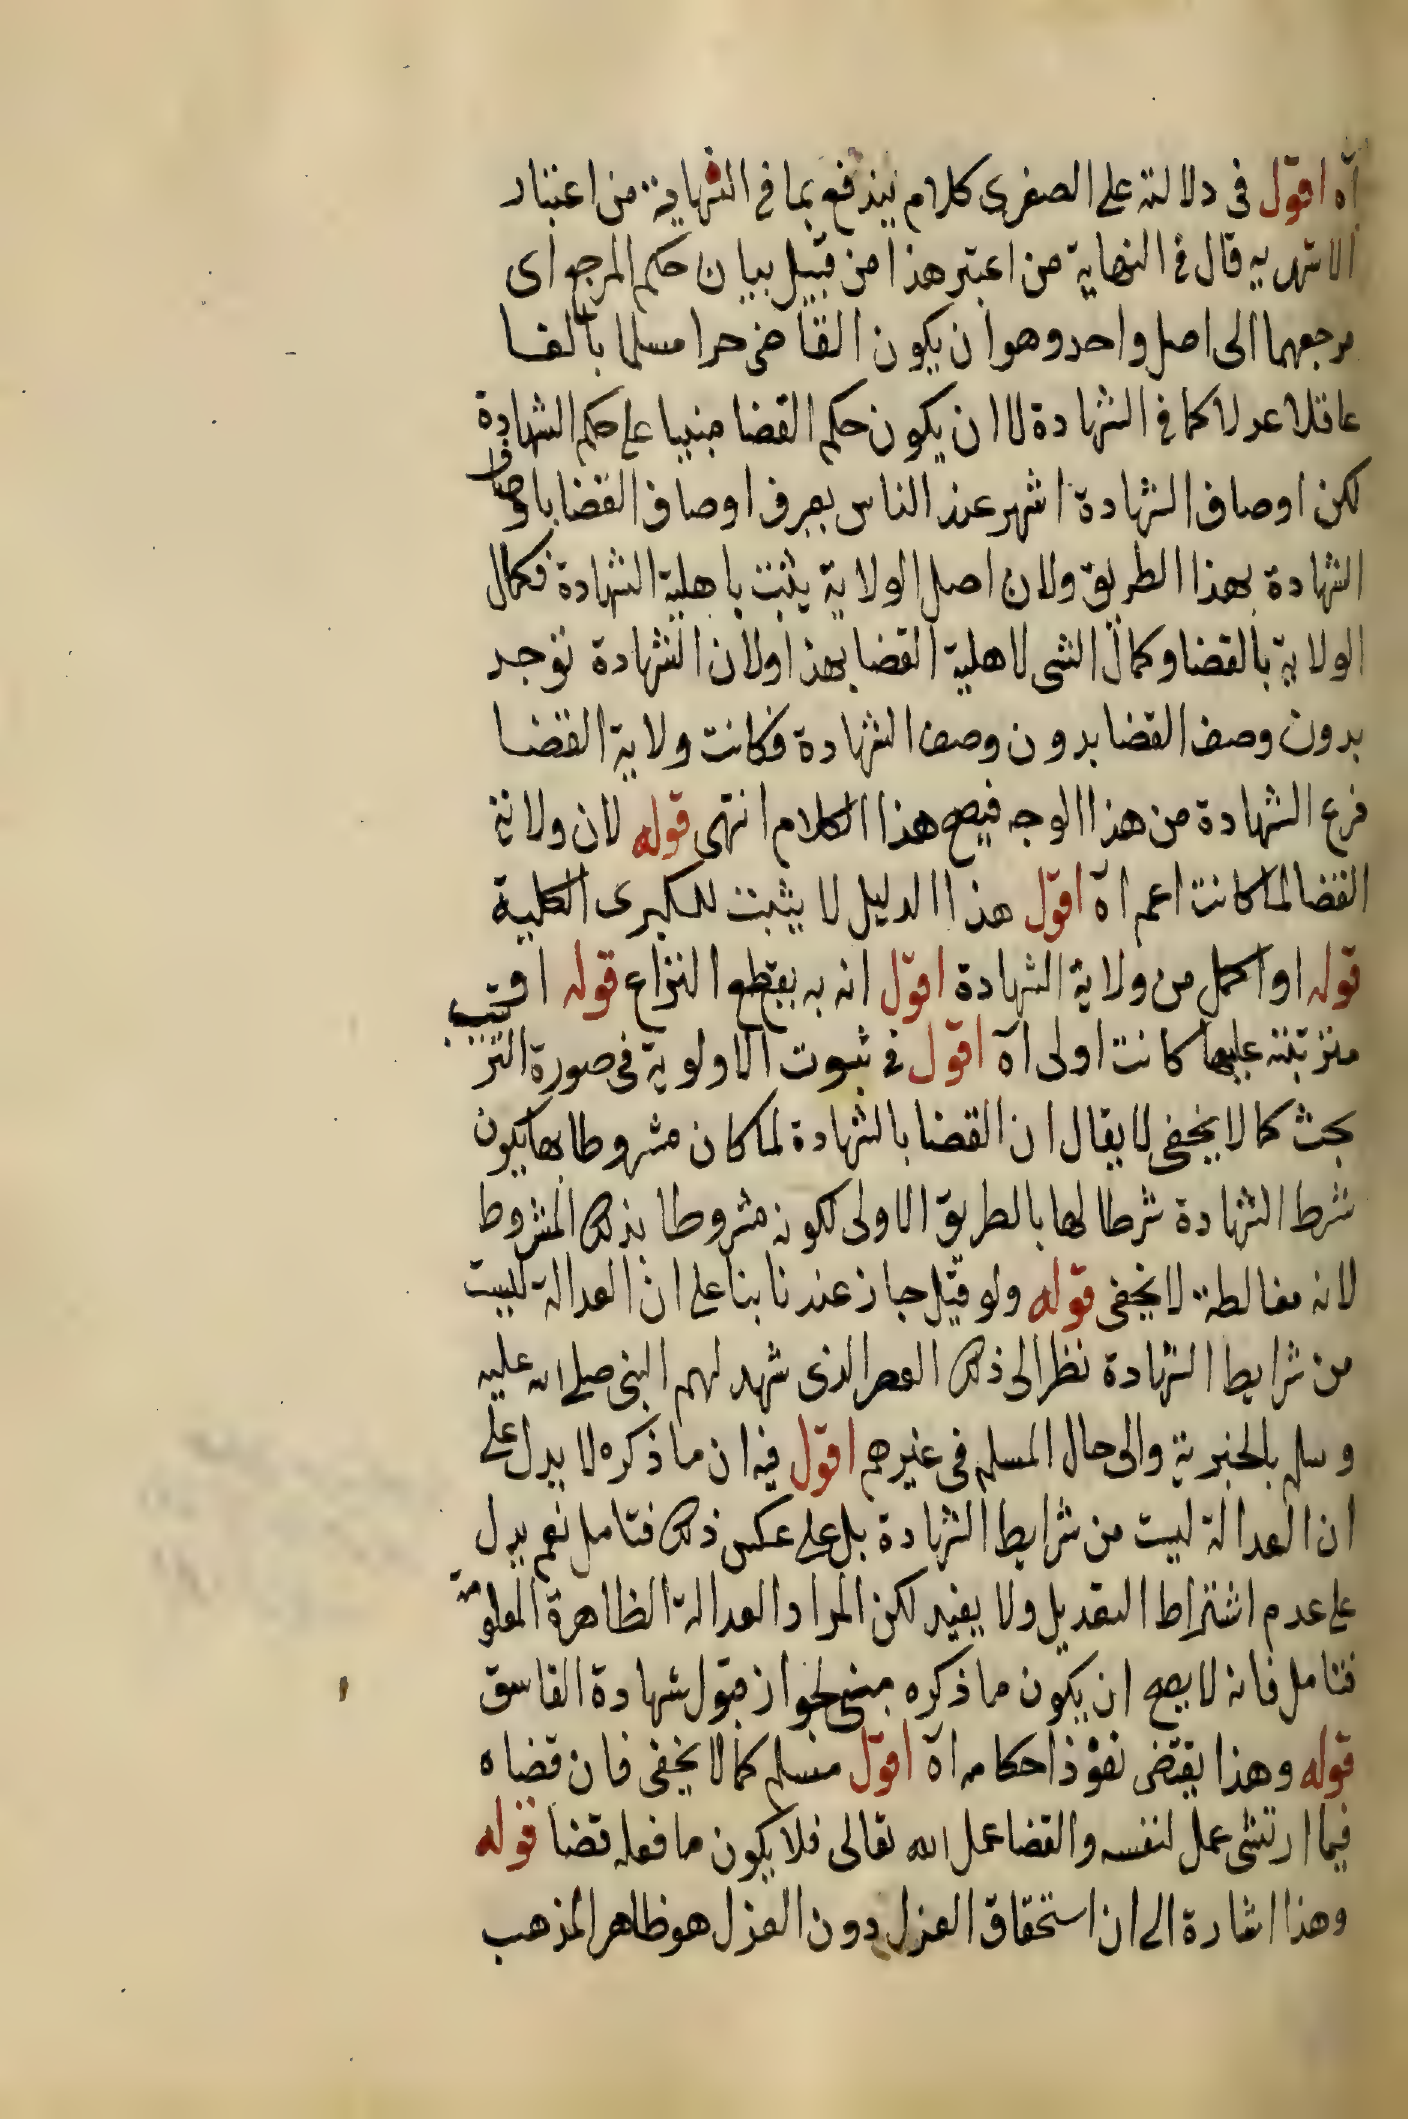 آه اقول في دلالته على الصغرى كلام يندفع بما في النهاية من اعتبار
الاشهريه قال في النهاية من اعتبر هذا من قبيل بيان حكم المرجع اى
مرجعهما الى اصل واحد وهو ان يكون القاضى حرا مسلما بالغا
عاقلا عدلا كما في الشهادة لا ان يكون حكم القضا مبنيا على حكم الشهادة
لكن اوصاف الشهادة اشهر عند الناس يعرف اوصاف القضا باوصاف
الشهادة بهذا الطريق ولان اصل الولاية يثبت باهلية الشهادة فكمال
الولاية بالقضا وكمال الشى لاهلية القضا بهذا ولان الشهادة توجد
بدون وصف القضا بدون وصف الشهادة فكانت ولاية القضا
فرع الشهادة من هذا الوجه فيصح هذا الكلام انتهى قوله لان ولاية
القضا لما كانت اعم آه اقول هذا الدليل لا يثبت للكبرى الكلية
قوله او اكمل من ولاية الشهادة اقول انه به يقطع النزاع قوله او
مترتبته عليها كانت اولى آه اقول في ثبوت الاولوية في صورة الترتيب
بحث كما لا يخفى لا يقال ان القضا بالشهادة لما كان مشروطا بها يكون
شرط الشهادة شرطا لها بالطريق الاولى لكونه مشروطا بذلك المشروط
لانه مغالطة لا يخفى قوله ولو قيل جاز عندنا بنا على ان العدالة ليست
من شرايط الشهادة نظرا الى ذلك العصر الذى شهد لهم النبى صلى الله عليه
وسلم بالخيرية والى حال المسلم في غيرهم اقول فيه ان ما ذكره لا يدل على
ان العدالة ليست من شرايط الشهادة بل على عكس ذلك فتامل نعم يدل
على عدم اشتراط التعديل ولا يفيد لكن المراد العدالة الظاهرة المعلومة
فتامل فانه لا يصح ان يكون ما ذكره مبنى لجواز قبول شهادة الفاسق
قوله وهذا يقتضى نفوذ احكامه آه اقول مسلم كما لا يخفى فان قضاه
فيما ارتشى عمل لنفسه والقضا عمل الله تعالى فلا يكون ما فعله قضا قوله
وهذا اشارة الى ان استحقاق العزل دون العزل هو ظاهر المذهب